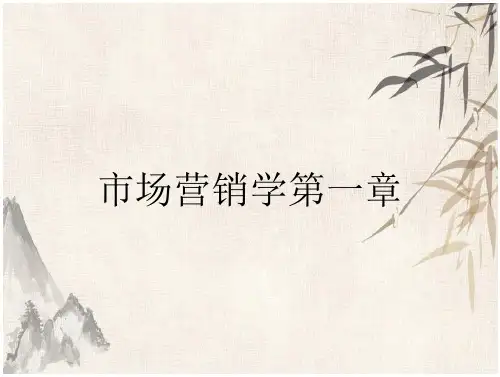 市场营销学第一章